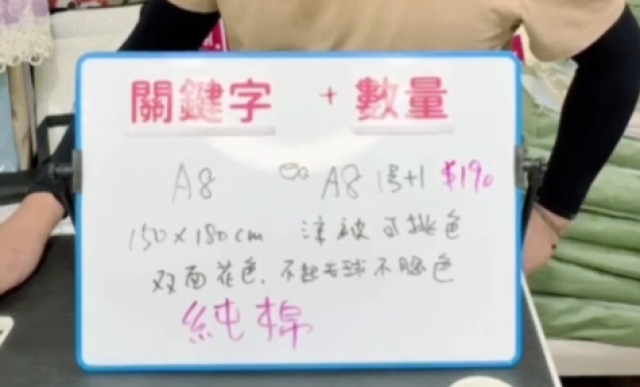 關鍵字 + 數量
A8 ∞ A8 1号+1 $190
150×180cm 涼被可挑色
双面花色、不起毛球不脫色
純棉